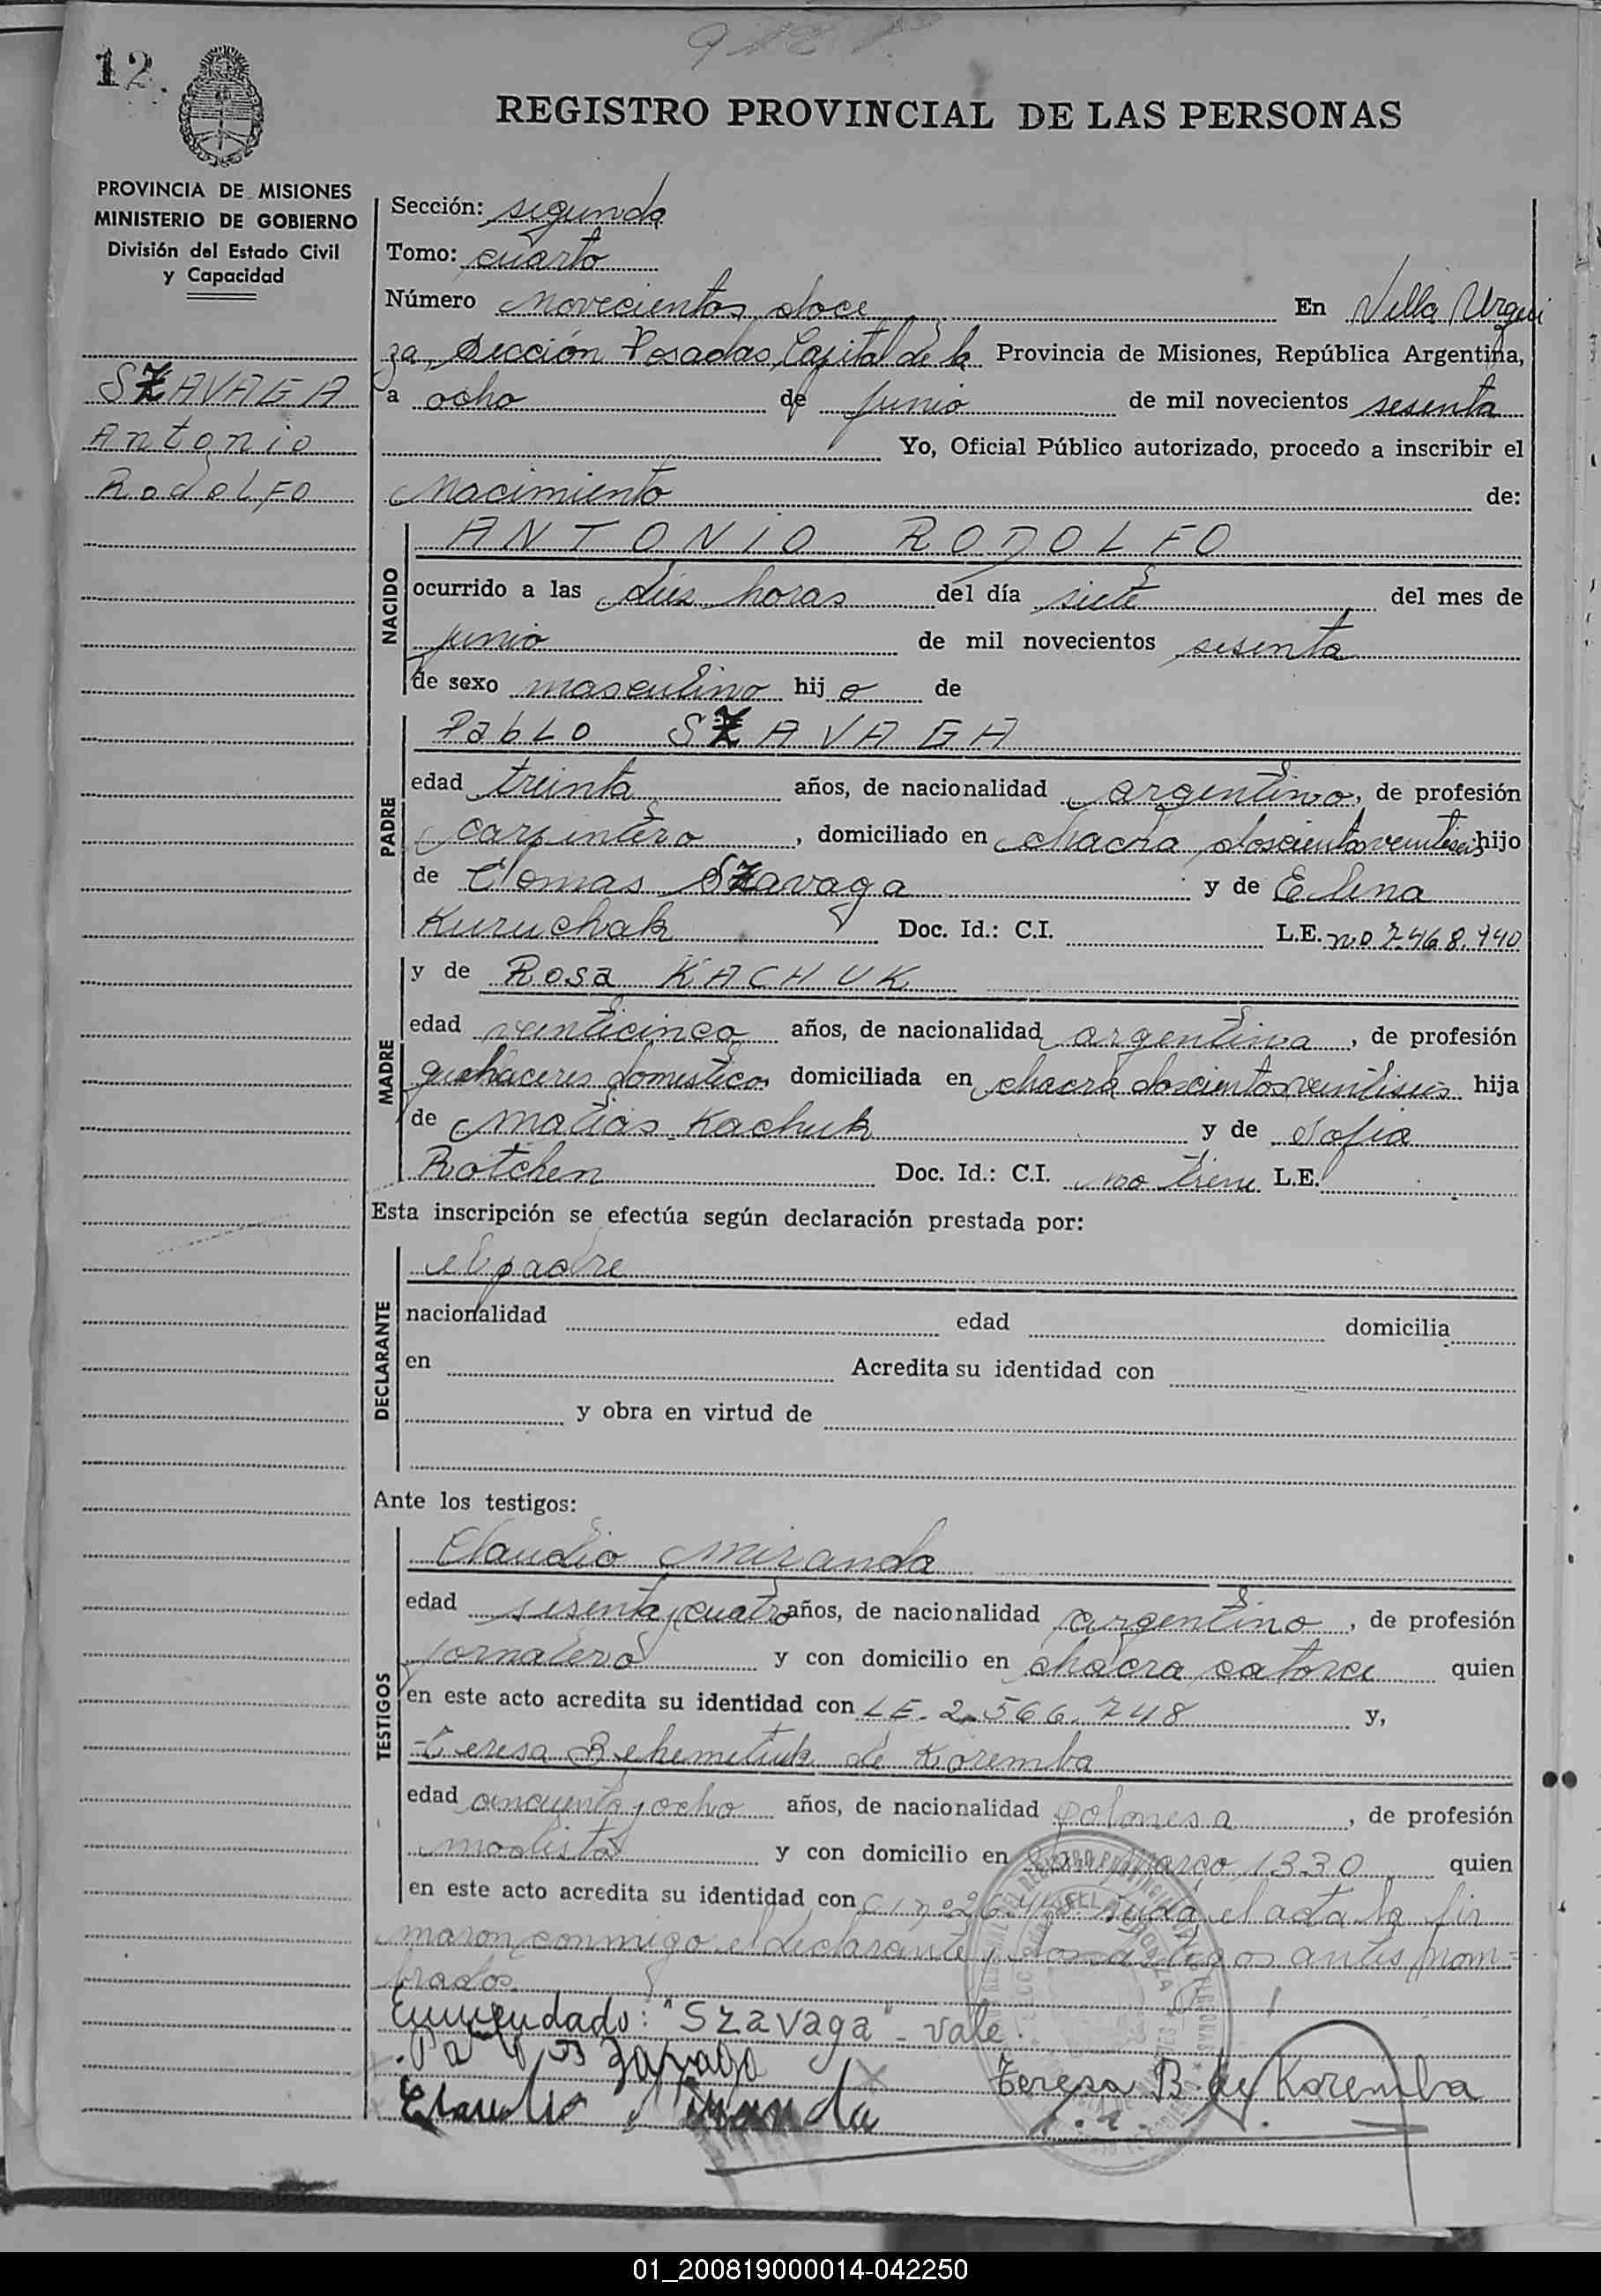 912
12
REGISTRO PROVINCIAL DE LAS PERSONAS
PROVINCIA DE MISIONES
MINISTERIO DE GOBIERNO
División del Estado Civil
y Capacidad
SZAVAGA
Antonio
RodoLFO
Sección: segunda
Tomo: cuarto
Número Novecientos doce En Villa Urqui
za, Sección Posadas Capital de la Provincia de Misiones, República Argentina,
a ocho de junio de mil novecientos sesenta
Yo, Oficial Público autorizado, procedo a inscribir el
Nacimiento de:
NACIDO
ANTONIO RODOLFO
ocurrido a las diez horas del día siete del mes de
junio de mil novecientos sesenta
de sexo masculino hijo de
PADRE
PabLO SZAVAGA
edad treinta años, de nacionalidad argentino, de profesión
carpintero, domiciliado en chacra doscientos veintiseis hijo
de Tomas Szavaga y de Elena
Kuruchak Doc. Id.: C.I. L.E. no 7.468.940
MADRE
y de Rosa KACHUK
edad veinticinco años, de nacionalidad argentina, de profesión
quehaceres domesticos domiciliada en chacra doscientos veintiseis hija
de Matias Kachuk y de Sofia
Rotchen Doc. Id.: C.I. no tiene L.E.
Esta inscripción se efectúa según declaración prestada por:
DECLARANTE
el padre
nacionalidad edad domicilia
en Acredita su identidad con
y obra en virtud de
Ante los testigos:
TESTIGOS
Claudio Miranda
edad sesenta y cuatro años, de nacionalidad argentino, de profesión
jornalero y con domicilio en chacra catorce quien
en este acto acredita su identidad con LE. 2.566.748 y,
Teresa Behemetiuk de Koremba
edad cincuenta y ocho años, de nacionalidad polonesa, de profesión
modista y con domicilio en 1330 quien
en este acto acredita su identidad con CI no el acta la fir
maron conmigo el declarante y los testigos antes nom=
brados.
Enmendado: "Szavaga" - vale.
Teresa B. de Koremba
Claudio Miranda
01_200819000014-042250